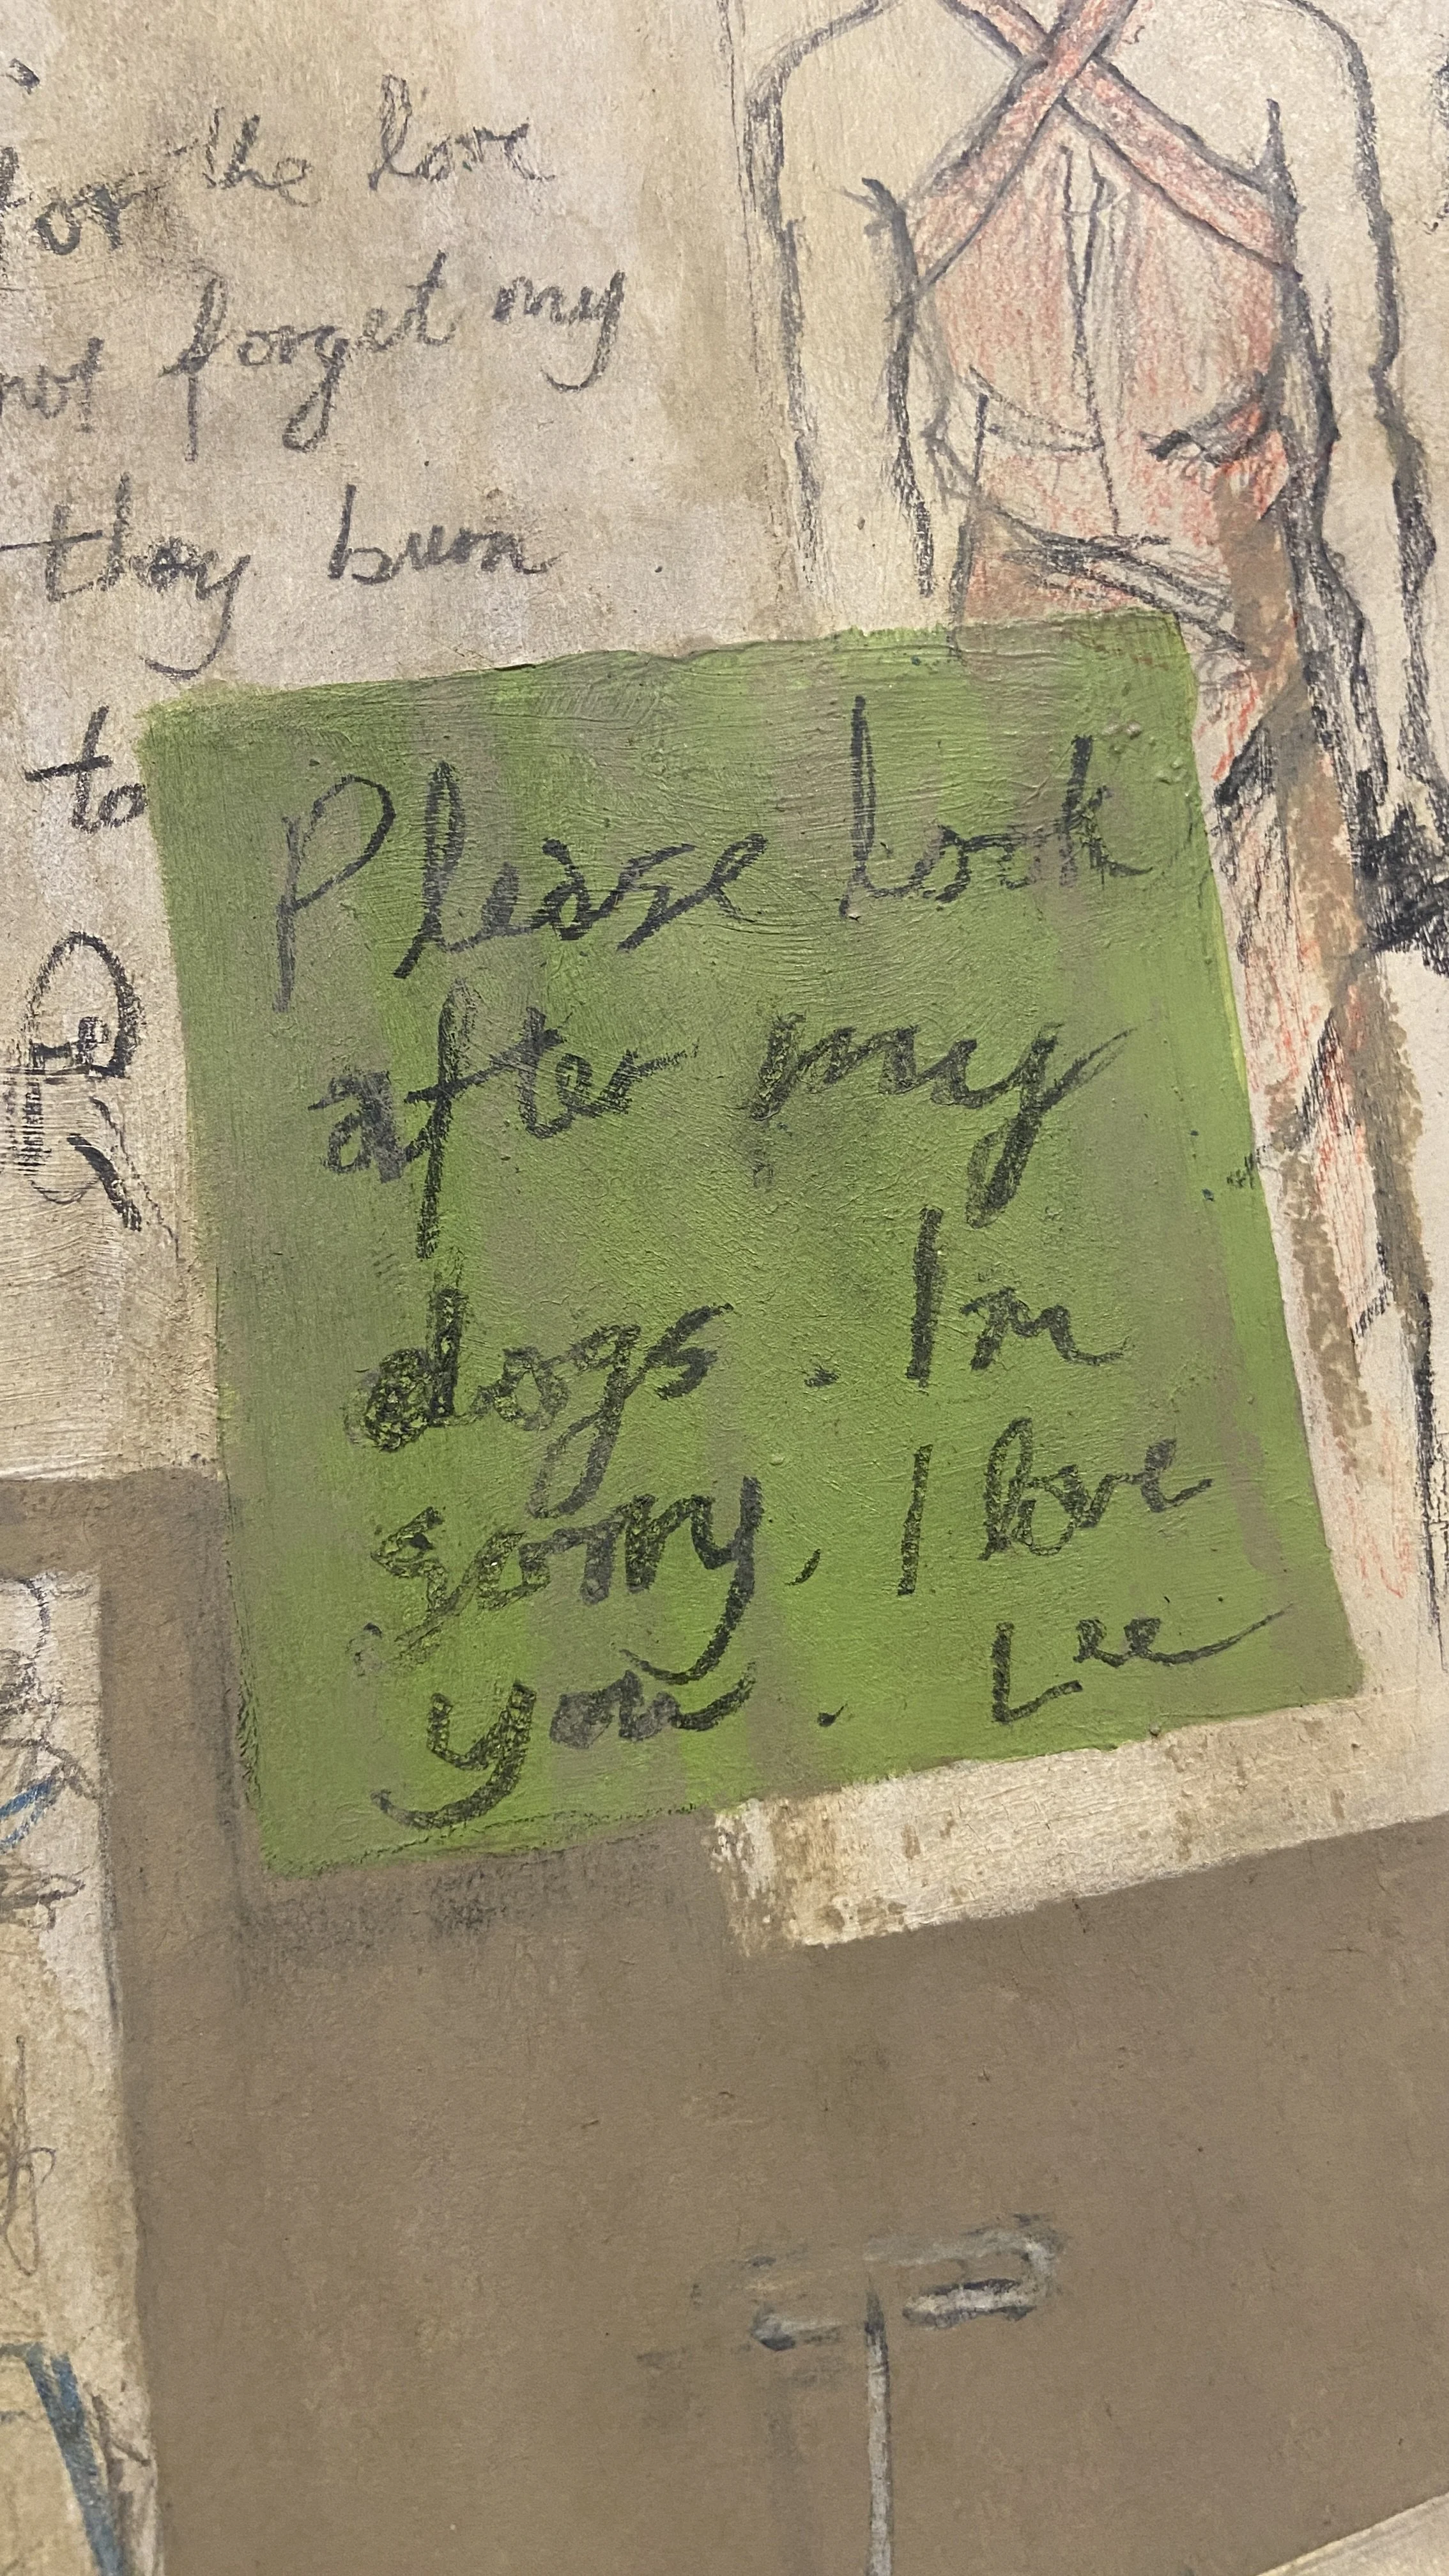 for the love
not forget my
they burn
to
Please look
after my
dogs. Im
sorry, I love
you. Lee